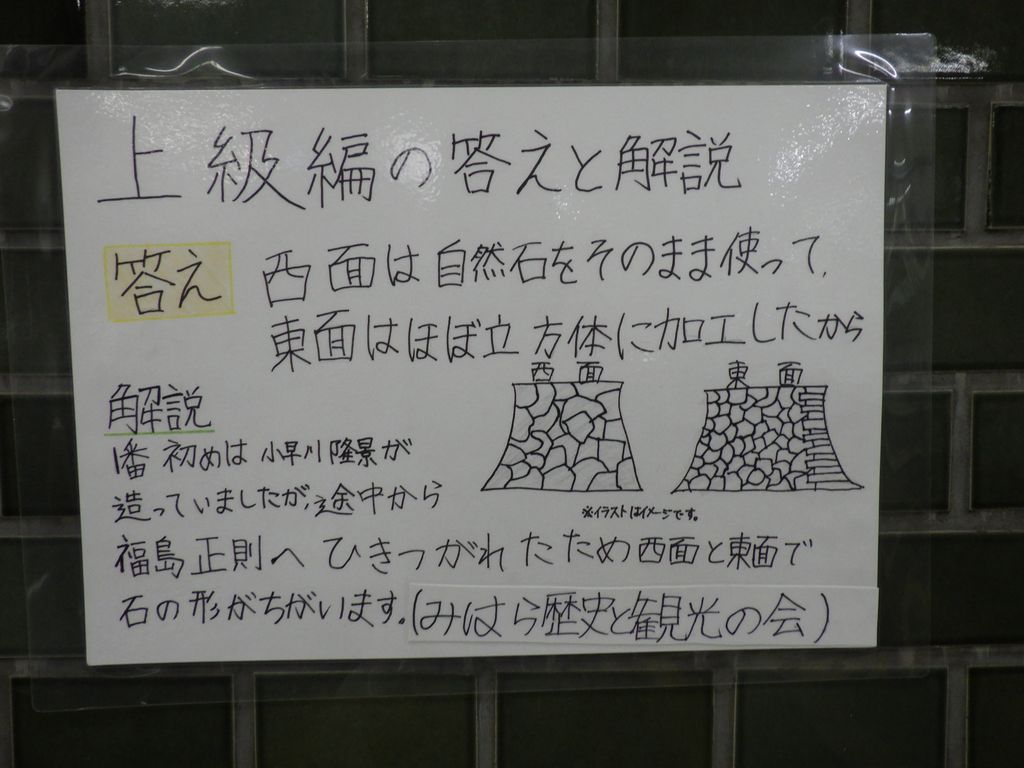 上級編の答えと解説
答え 西面は自然石をそのまま使って、
東面はほぼ立方体に加工したから
西面 東面
解説
1番初めは小早川隆景が
造っていましたが、途中から
※イラストはイメージです。
福島正則へひきつがれたため西面と東面で
石の形がちがいます。(みはら歴史と観光の会)